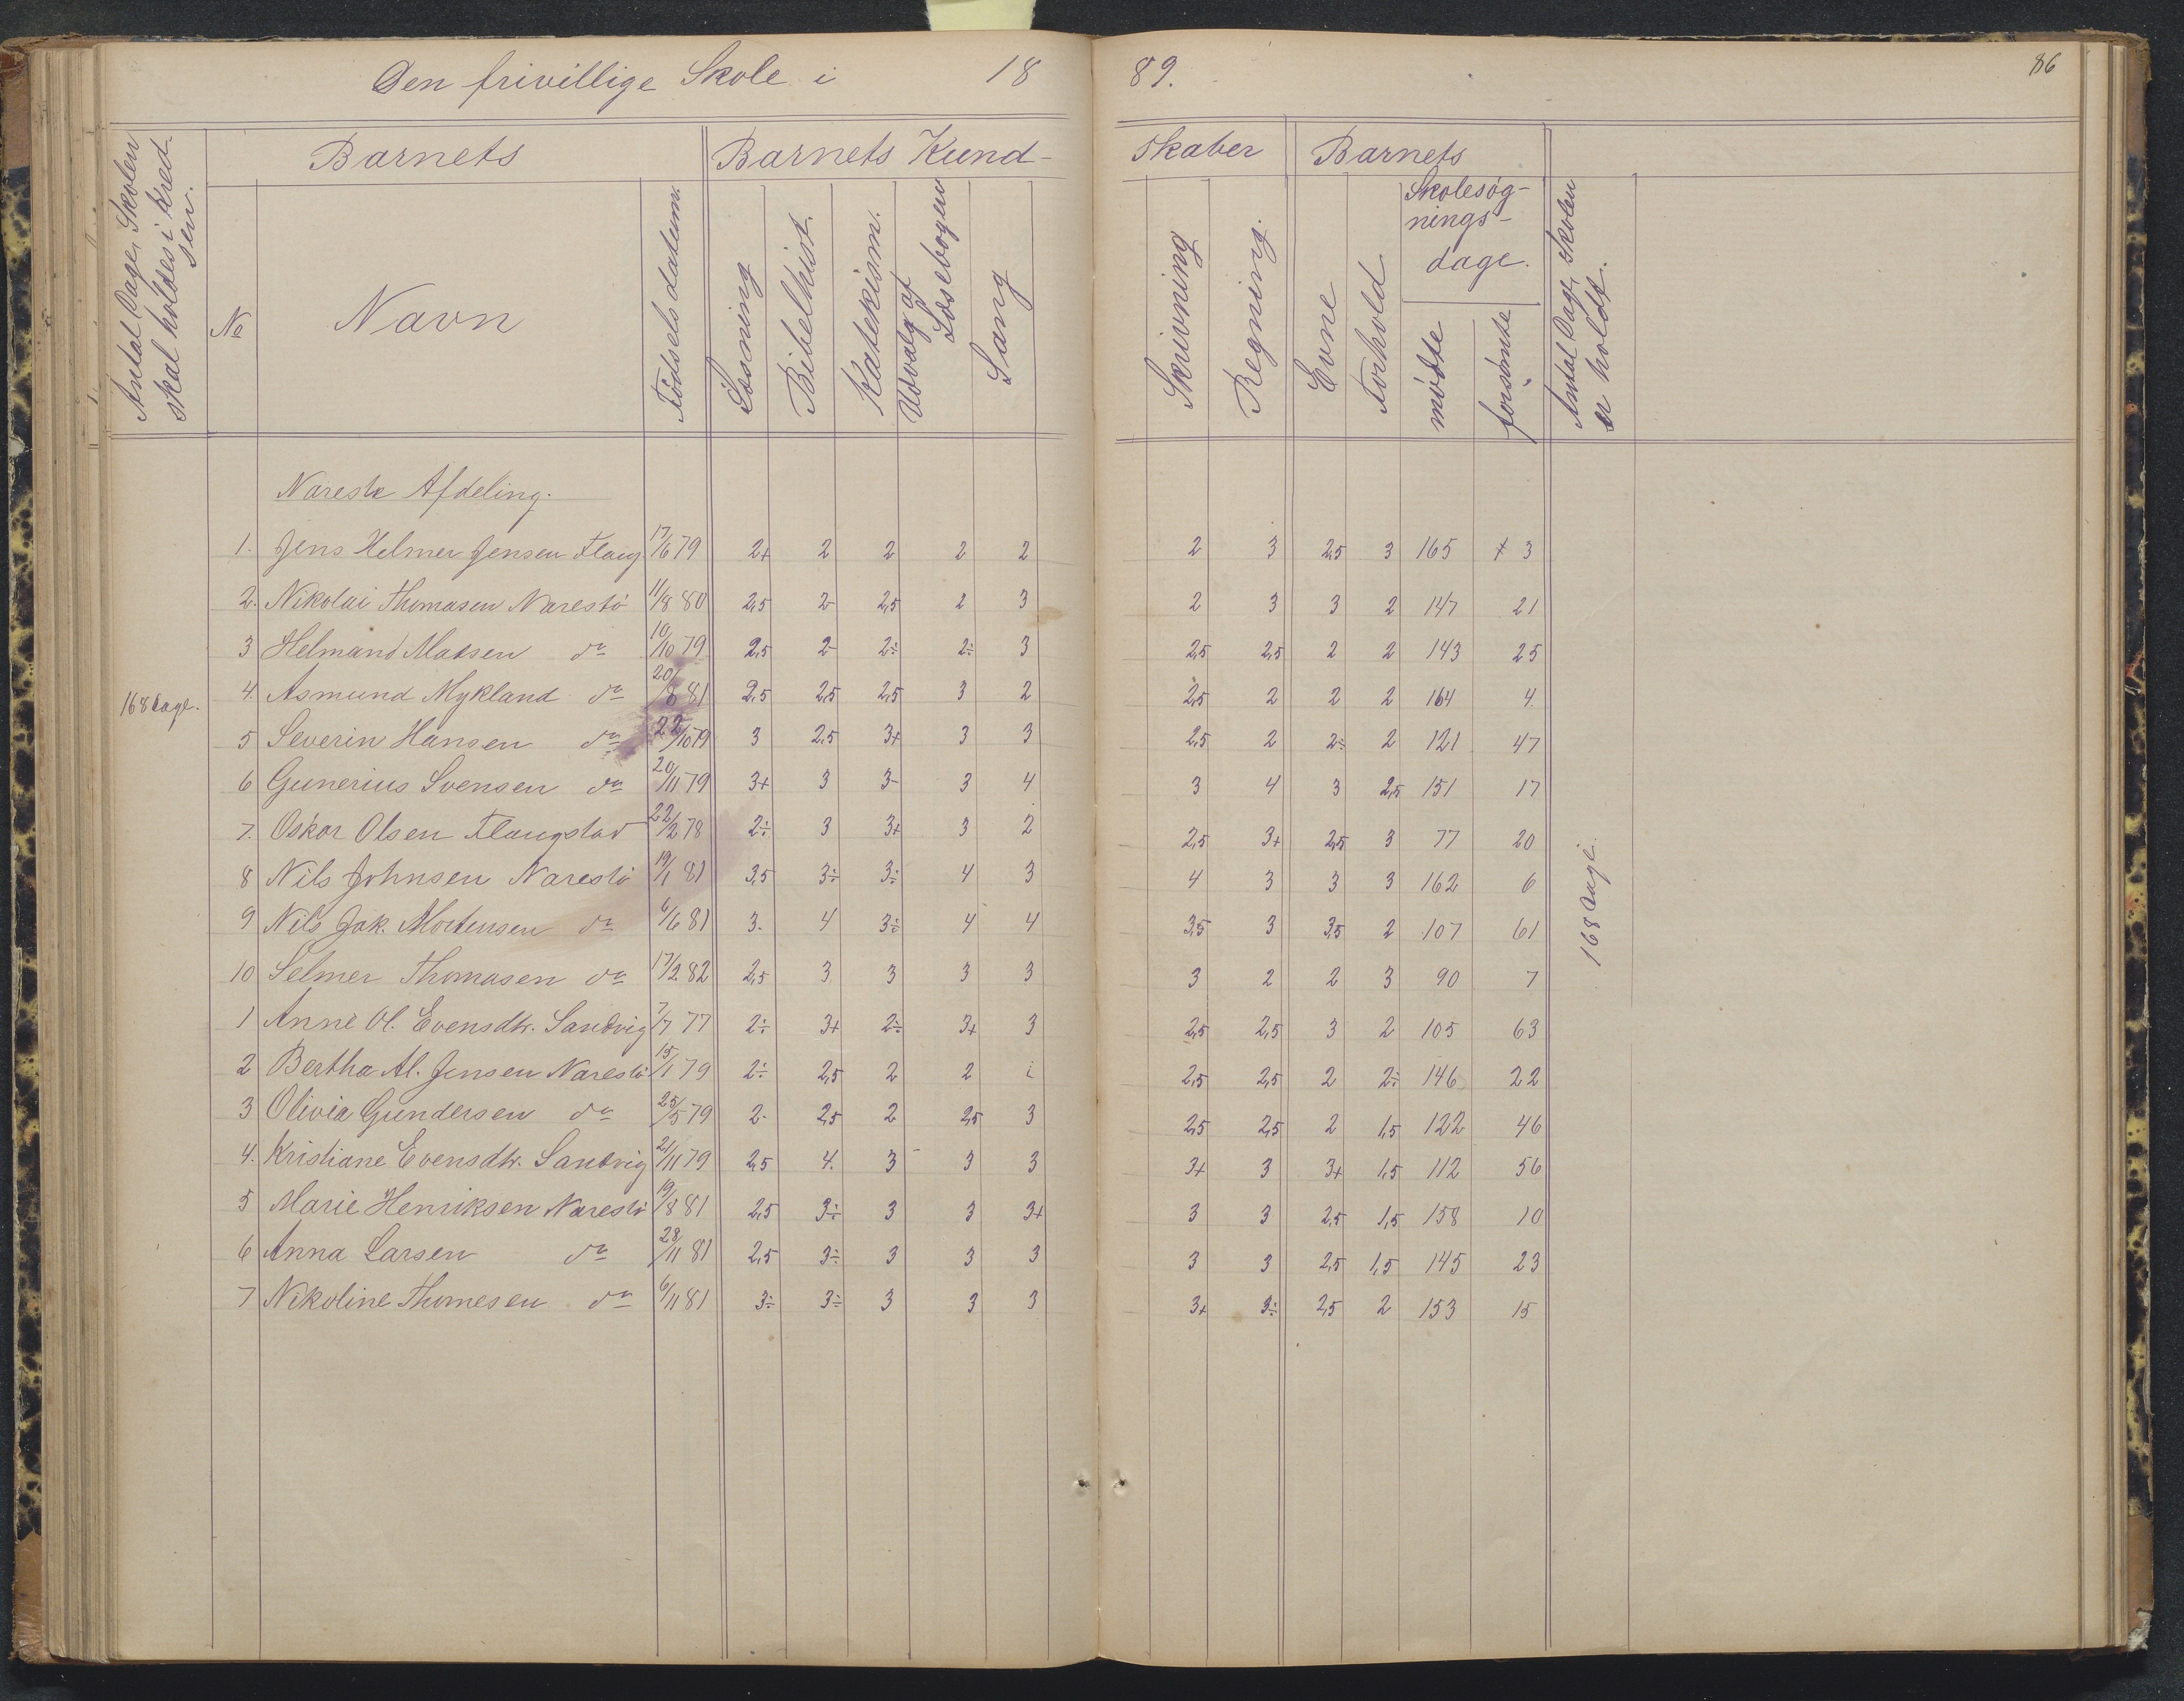 Den frivillige Skole i 18 89. 86
Antal Dage, Skolen skal holdes i Kredsen.
Barnets
Barnets Kund-
skaber
Barnets
No
Navn
Fødselsdatum.
Læsning
Bibelhist.
Katekism.
Udvalg af Læsebogen
Sang
Skrivning
Regning.
Evne
Forhold
Skolesøg-
nings-
dage.
mødte
forsømte
Antal Dage, Skolen er holdt.
Narestø Afdeling.
1. Jens Helmer Jensen Flaug 17/6 79 2+ 2 2 2 2 2 3 2,5 3 165 3
2. Nikolai Thomasen Narestø 11/8 80 2,5 2- 2,5 2 3 2 3 3 2 147 21
3 Helmand Madsen do 10/10 79 2,5 2- 2÷ 2÷ 3 2,5 2,5 2 2 143 25
168 Dage.
4 Asmund Mykland do 20/8 81 2,5 2,5 2,5 3 2 2,5 2 2 2 164 4
5 Severin Hansen do 22/10 79 3 2,5 3+ 3 3 2,5 2 2÷ 2 121 47
6 Gunerius Svensen do 20/11 79 3+ 3 3- 3 4 3 4 3 2,5 151 17
7. Oskar Olsen Flaugstad 22/2 78 2÷ 3 3+ 3 2 2,5 3+ 2,5 3 77 20
8 Nils Johnsen Narestø 19/1 81 3,5 3÷ 3÷ 4 3 4 3 3 3 162 6
9 Nils Jak. Mortensen do 6/6 81 3- 4 3÷ 4 4 3,5 3 3,5 2 107 61
168 Dage.
10 Selmer Thomasen do 17/2 82 2,5 3 3 3 3 3 2 2 3 90 7
1 Anne Ol. Evensdtr. Sandvig 7/7 77 2÷ 3+ 2÷ 3+ 3 2,5 2,5 3 2 105 63
2 Bertha Al. Jensen Narestø 15/1 79 2÷ 2,5 2 2 i 2,5 2,5 2 2÷ 146 22
3 Olivia Gundersen do 25/5 79 2- 2,5 2 2,5 3 2,5 2,5 2 1,5 122 46
4. Kristiane Evensdtr. Sandvig 21/11 79 2,5 4. 3 3 3 3+ 3 3+ 1,5 112 56
5 Marie Henriksen Narestø 19/8 81 2,5 3÷ 3 3 3+ 3 3 2,5 1,5 158 10
6 Anna Larsen do 28/11 81 2,5 3÷ 3 3 3 3 3 2,5 1,5 145 23
7 Nikoline Thomesen do 6/11 81 3÷ 3÷ 3 3 3 3+ 3÷ 2,5 2 153 15